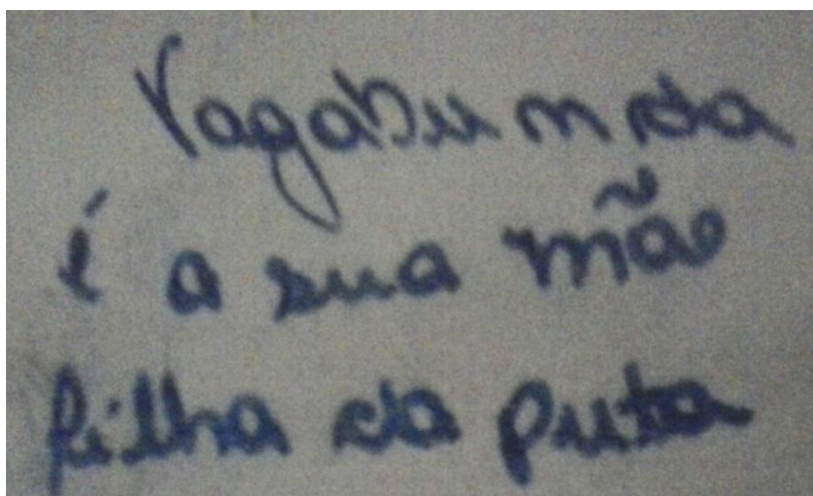 Vagabunda
é a sua mãe
filha da puta